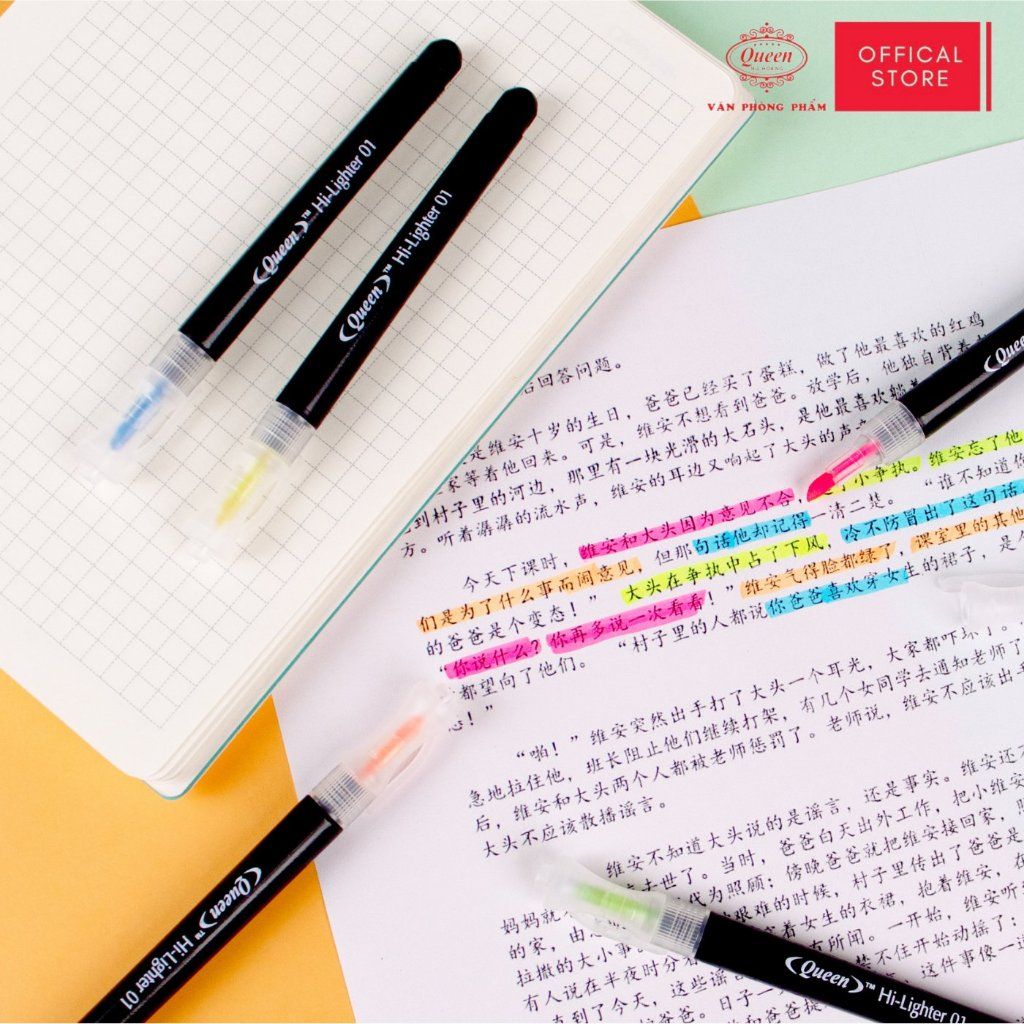 Queen
NỮ HOÀNG
VĂN PHÒNG PHẨM
OFFICAL
STORE
Queen™ Hi-Lighter 01
Queen™ Hi-Lighter 01
Queen
后回答问题。
是维安十岁的生日，爸爸已经买了蛋糕，做了他最喜欢的红鸡
家等着他回来。可是，维安不想看到爸爸。放学后，他独自背着
到村子里的河边，那里有一块光滑的大石头，是他最喜欢躺
方。听着潺潺的流水声，维安的耳边又响起了大头的声
今天下课时，维安和大头因为意见不合，起了小争执。维安忘了他
们是为了什么事而闹意见，但那句话他却记得一清二楚。“谁不知道你
的爸爸是个变态！”大头在争执中占了下风，冷不防冒出了这句话
“你说什么？你再多说一次看看！”维安气得脸都绿了，课室里的其他
都望向了他们。“村子里的人都说你爸爸喜欢穿女生的裙子，是
态！”
“啪！”维安突然出手打了大头一个耳光，大家都吓坏了。
急地拉住他，班长阻止他们继续打架，有几个女同学去通知老师了
后，维安和大头两个人都被老师惩罚了。老师说，维安不应该出手
大头不应该散播谣言。
维安不知道大头说的是谣言，还是事实。维安还
去世了。当时，爸爸白天出外工作，把小维安
妈妈就 代为照顾；傍晚爸爸就把维安接回家，
的家，由 艰难的时候，村子里传出了爸爸是
拉撒的大小事 穿着女生的衣裙，抱着维安，在
有人说在半夜时分 有所闻。一开始，维安听
直到了今天，这些谣 禁不住开始动摇了：
爸爸。日子一 这件事像一
和爸爸提
Queen™ Hi-Lighter 01
Queen™ Hi-Lighter 01